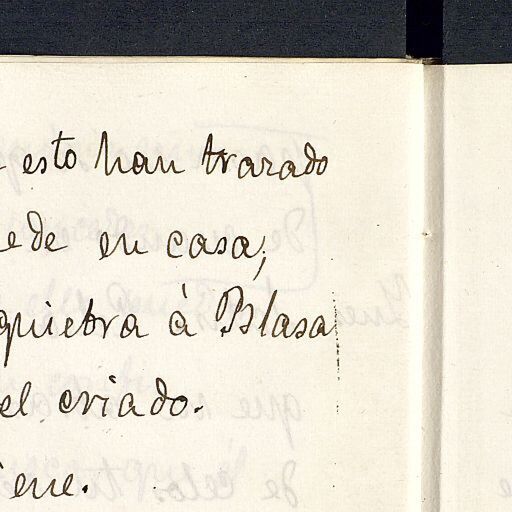 esto han trazado
ede en casa,
quiebra à Blasa
el criado.
iene.